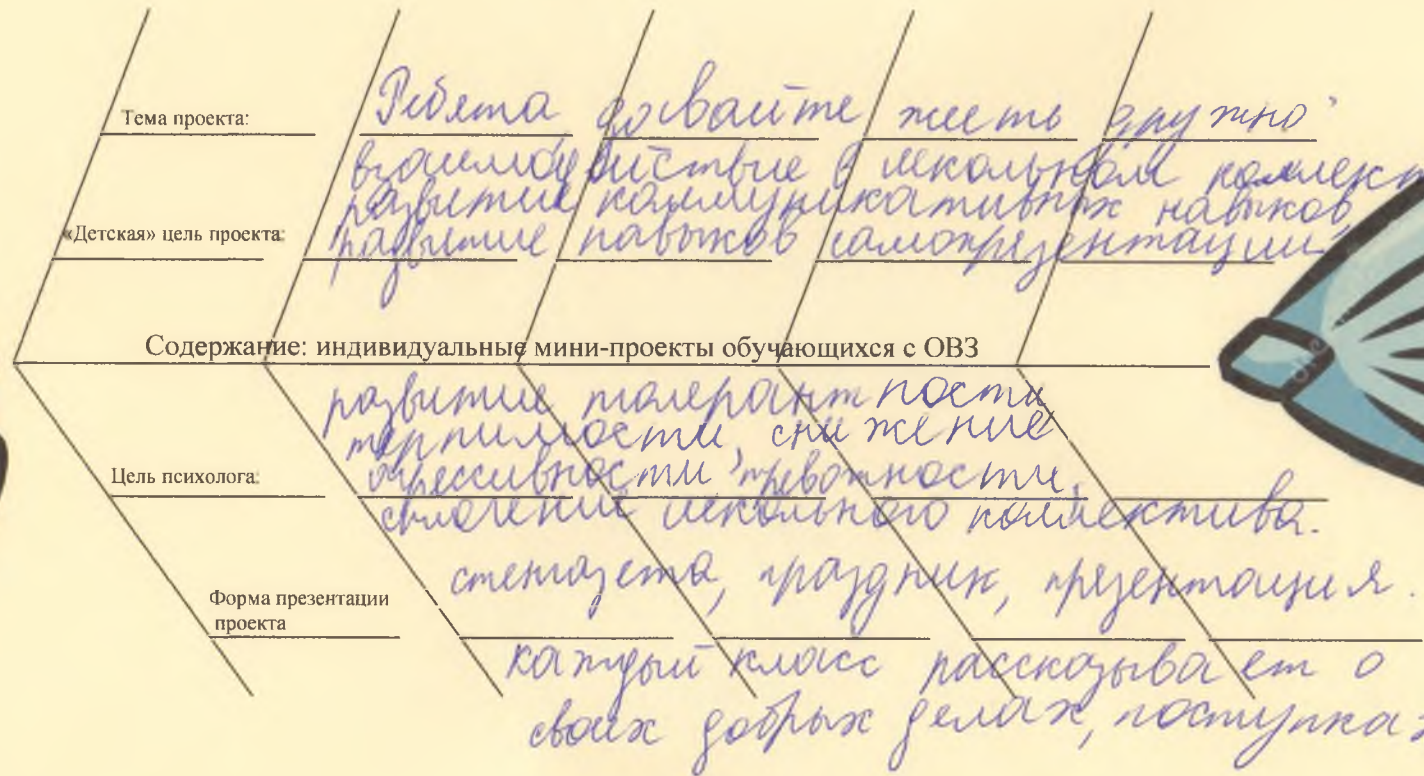 Тема проекта: Ребята давайте жить дружно"
взаимодействие в школьном коллект
развитие коммуникативных навыков,
«Детская» цель проекта: развитие навыков самопрезентации,
Содержание: индивидуальные мини-проекты обучающихся с ОВЗ
развитие толерантности
терпимости, снижение
Цель психолога: агрессивности, тревожности,
сплочение школьного коллектива.
Форма презентации стенгазета, праздник, презентация.
проекта
каждый класс рассказывает о
своих добрых делах, поступках